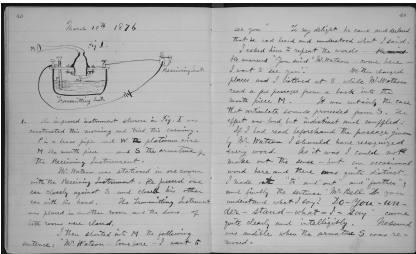 40
March 10th 1876
Fig. 1.
M
S
P
W
Receiving Inst.
Transmitting Inst.
1. The improved instrument shown in Fig. 1 was
constructed this morning and tried this evening.
P is a brass pipe and W the platinum wire
M the mouth piece and S the armature of
the Receiving Instrument.
Mr. Watson was stationed in one room
with the Receiving Instrument. He pressed one
ear closely against S and closed his other
ear with his hand. The Transmitting Instrument
was placed in another room and the doors of
both rooms were closed.
I then shouted into M the following
sentence: "Mr. Watson - Come here - I want to
41
see you". To my delight he came and declared
that he had heard and understood what I said.
I asked him to repeat the words.
He answered "You said 'Mr. Watson - come here -
I want to see you'." We then changed
places and I listened at S while Mr. Watson
read a few passages from a book into the
mouth piece M. It was certainly the case
that articulate sounds proceeded from S. The
effect was loud but indistinct and muffled.
If I had read beforehand the passage given
by Mr. Watson I should have recognized
every word. As it was I could not
make out the sense - but an occasional
word here and there was quite distinct.
I made out "to" and "out" and "further";
and finally the sentence "Mr. Bell do you
understand what I say? Do-you-un-
der-stand-what-I-say" came
quite clearly and intelligibly. No sound
was audible when the armature S was re-
moved.